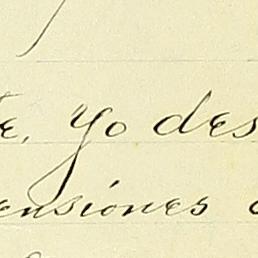 te, yo des
ensiones